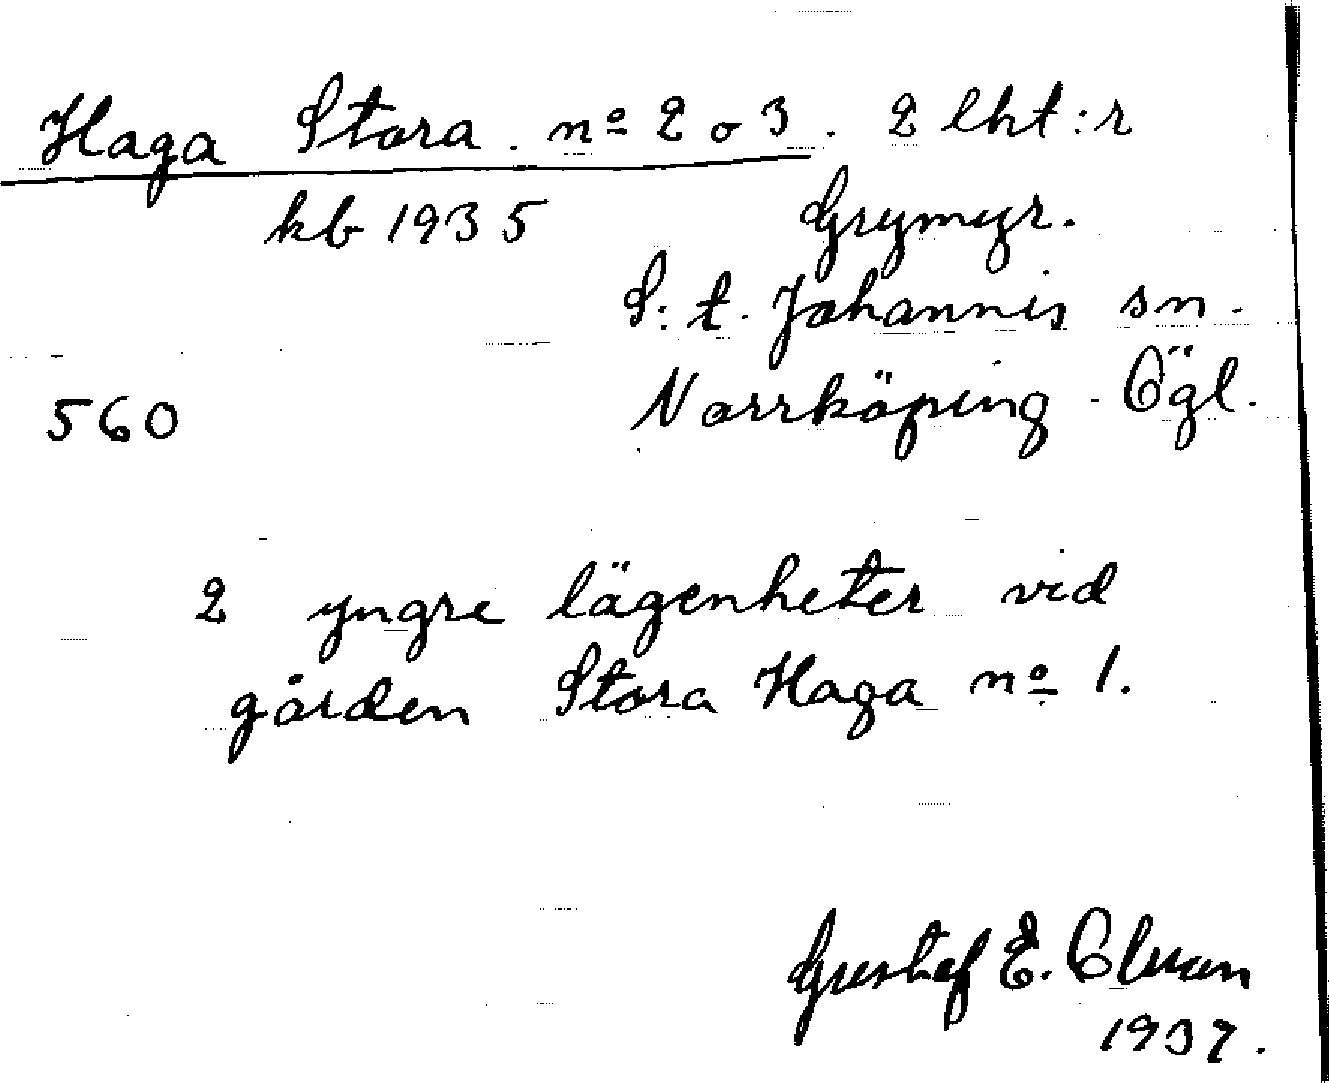 Haga Stora. nº 2 o 3. 2 lht:r
kb 1935 Grymyr.
S:t. Johannis sn.
560 Norrköping. Ögl.
2 yngre lägenheter vid
gården Stora Haga nº 1.
Gustaf E.
1937.